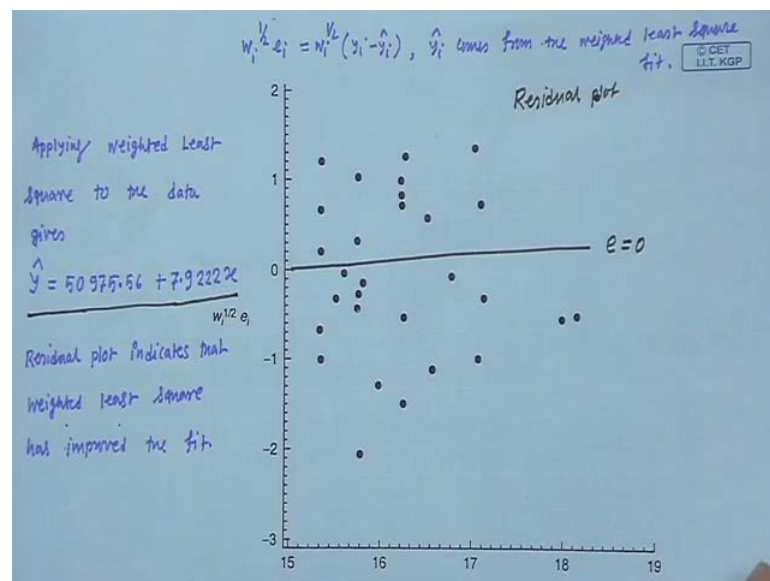 w_i^{1/2} e_i = w_i^{1/2} (y_i - ŷ_i), ŷ_i comes from the weighted least square
fit.
© CET
I.I.T. KGP
Residual plot
Applying weighted Least
Square to the data
gives
ŷ = 50975.56 + 7.9222x
Residual plot indicates that
weighted least square
has improved the fit
w_i^{1/2} e_i
2
1
0
-1
-2
-3
e=0
15 16 17 18 19